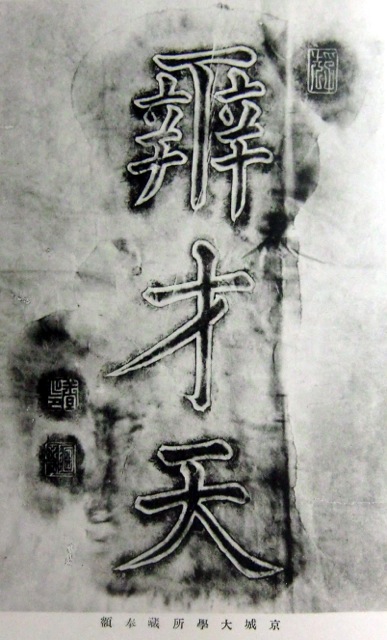 辨才天
京城大學所藏奉額